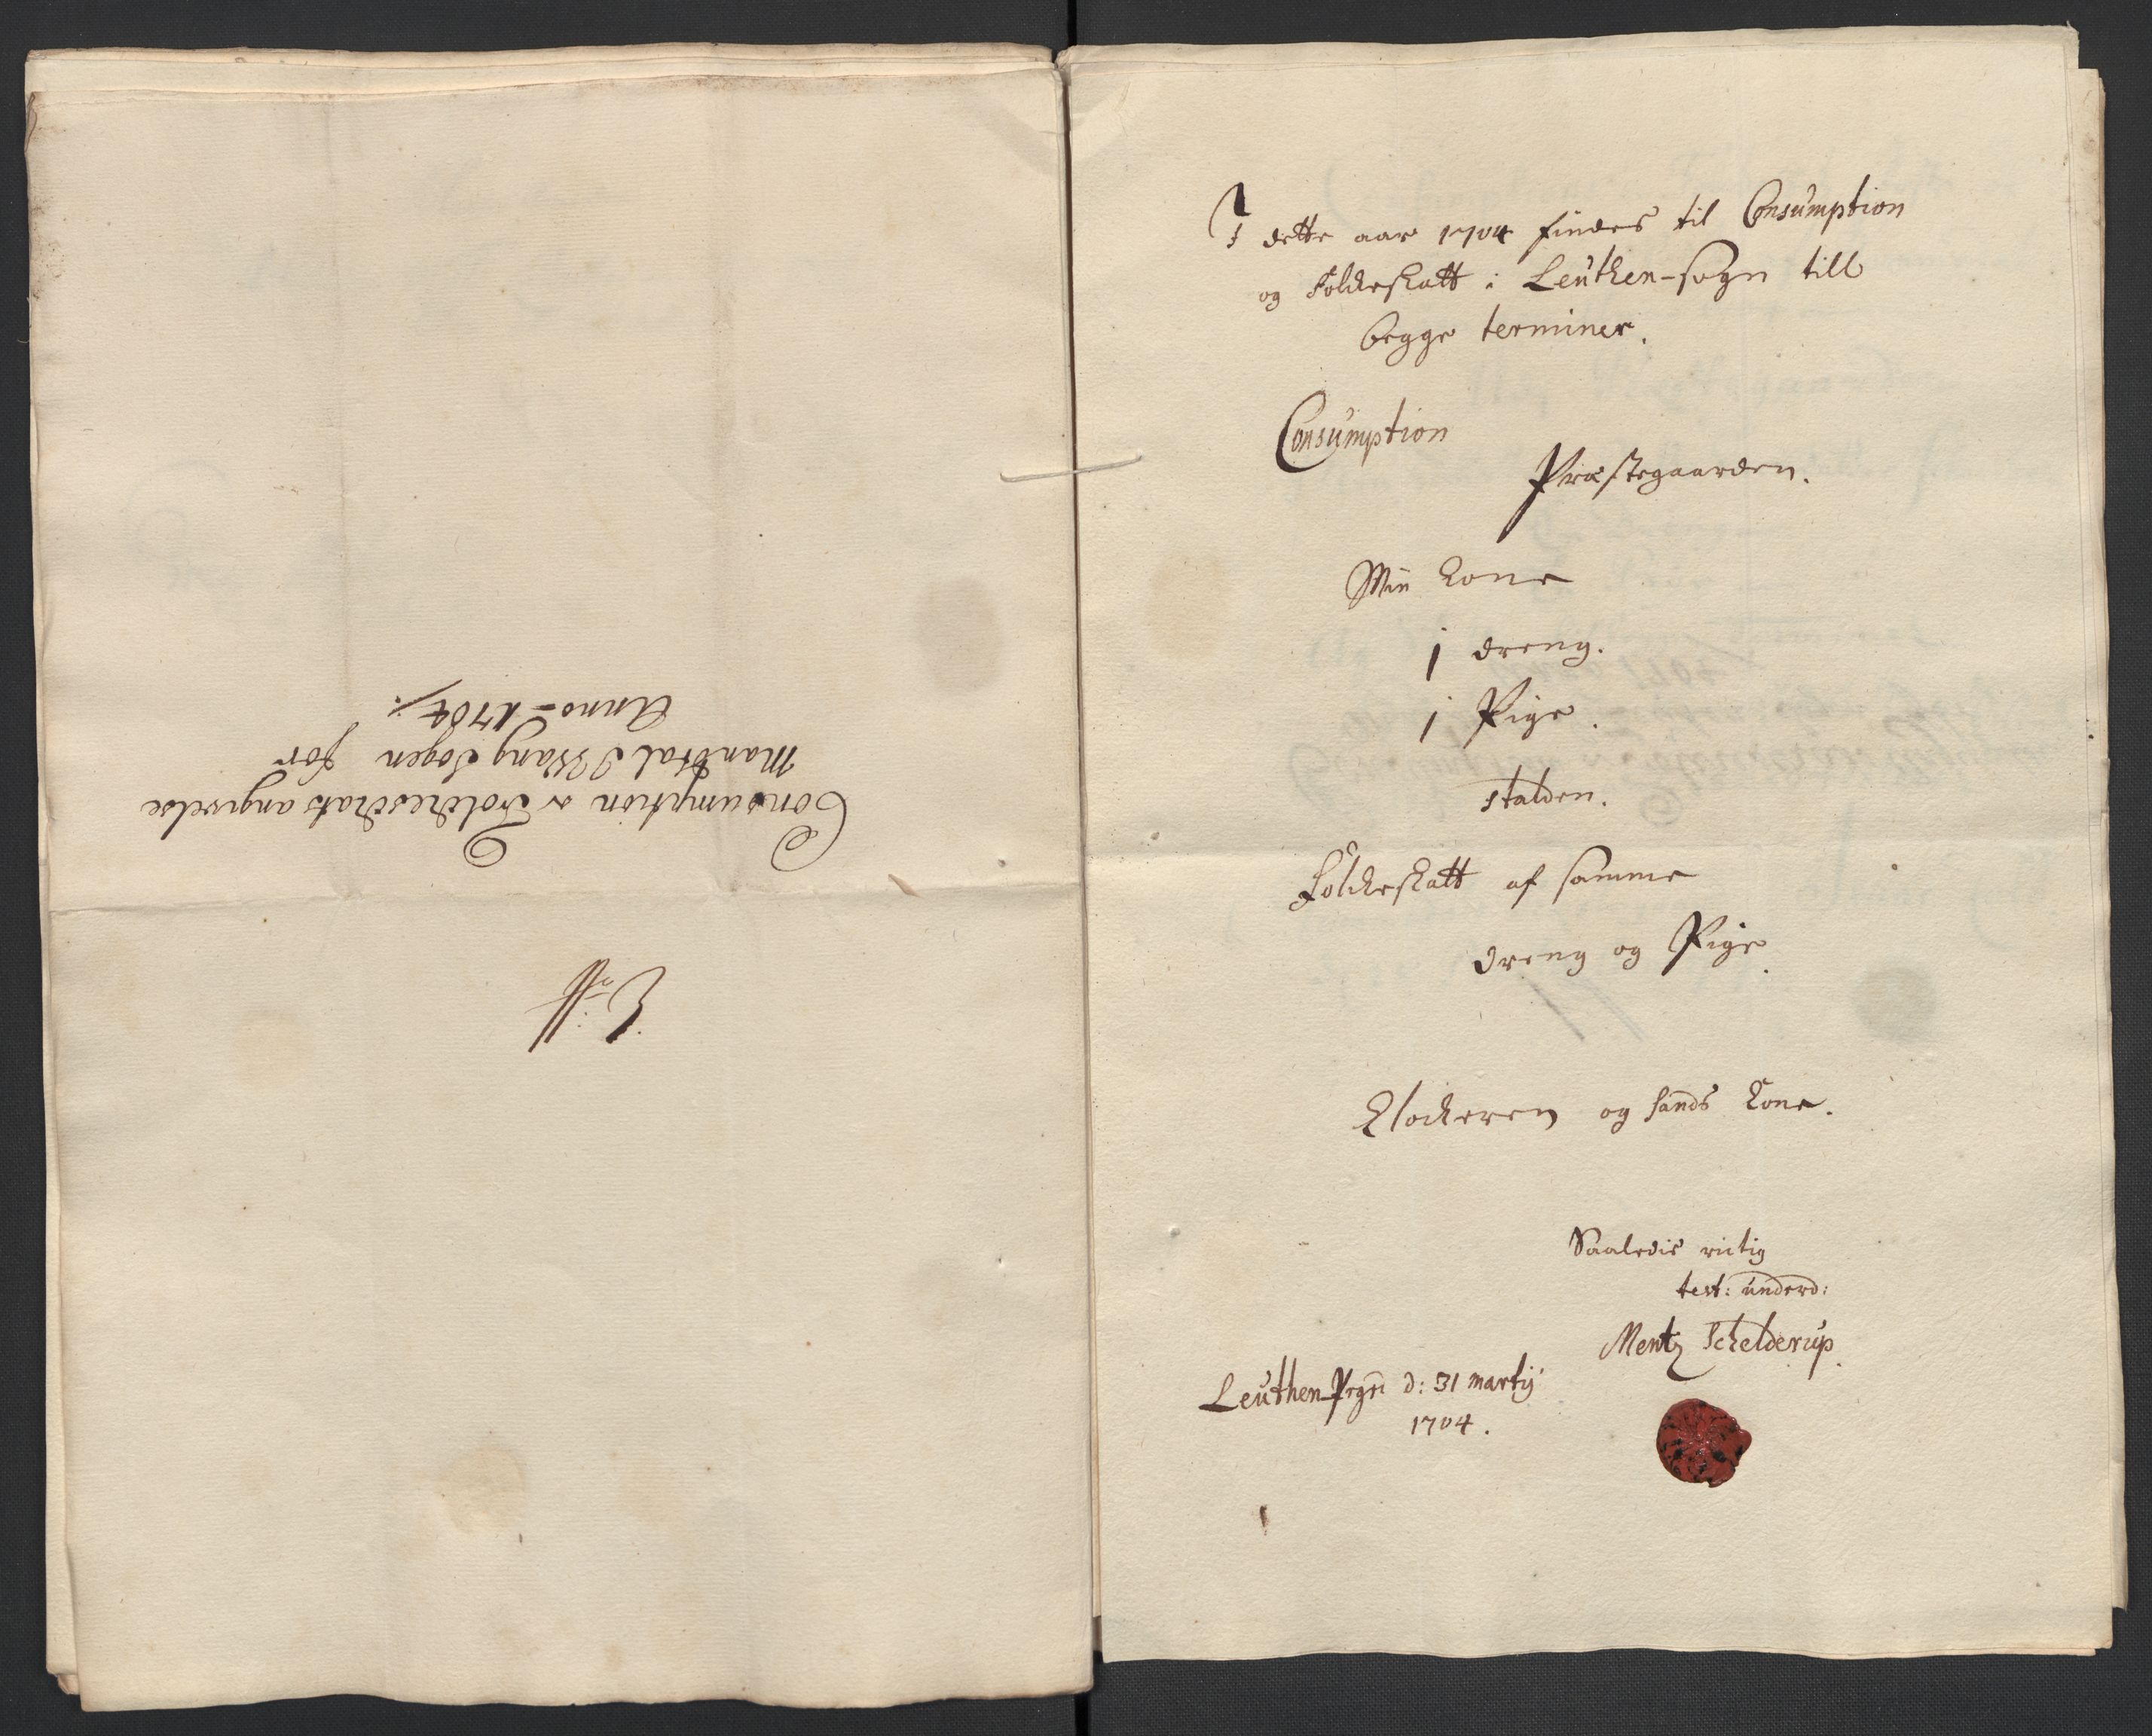 Consumption og Folckeschats angivelse
Mandtal I Wang Sogen for
Anno 1704
I dette aar 1704 findes til Consumption
og Folckeskatt i Leuthen-sogn till
begge terminer.
Consumption
Præstegaarden.
Min kone
1 dreng.
1 Pige.
stalden.
Folckeskatt af samme
dreng og Pige.
Klockeren og hands kone.
Saaledis rictig
test: underd:
Mentz Schelderup
Leuthen-Prgrd d: 31 martij
1704.